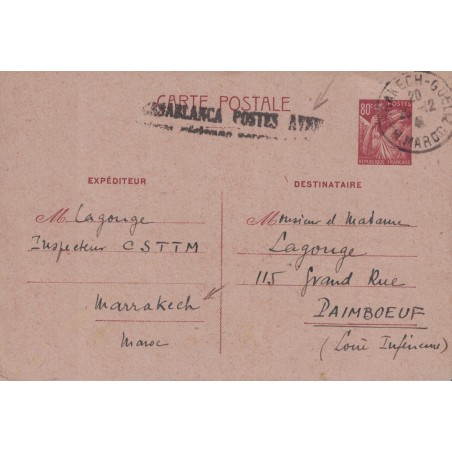 CARTE POSTALE
CASABLANCA POSTES
80c POSTES
RÉPUBLIQUE FRANÇAISE
MARRAKECH-GUELIZ
20
12
MAROC
EXPÉDITEUR
M Lagouge
Inspecteur CSTTM
Marrakech
Maroc
DESTINATAIRE
Monsieur et Madame
Lagouge
115 Grand Rue
PAIMBOEUF
(Loire Inférieure)